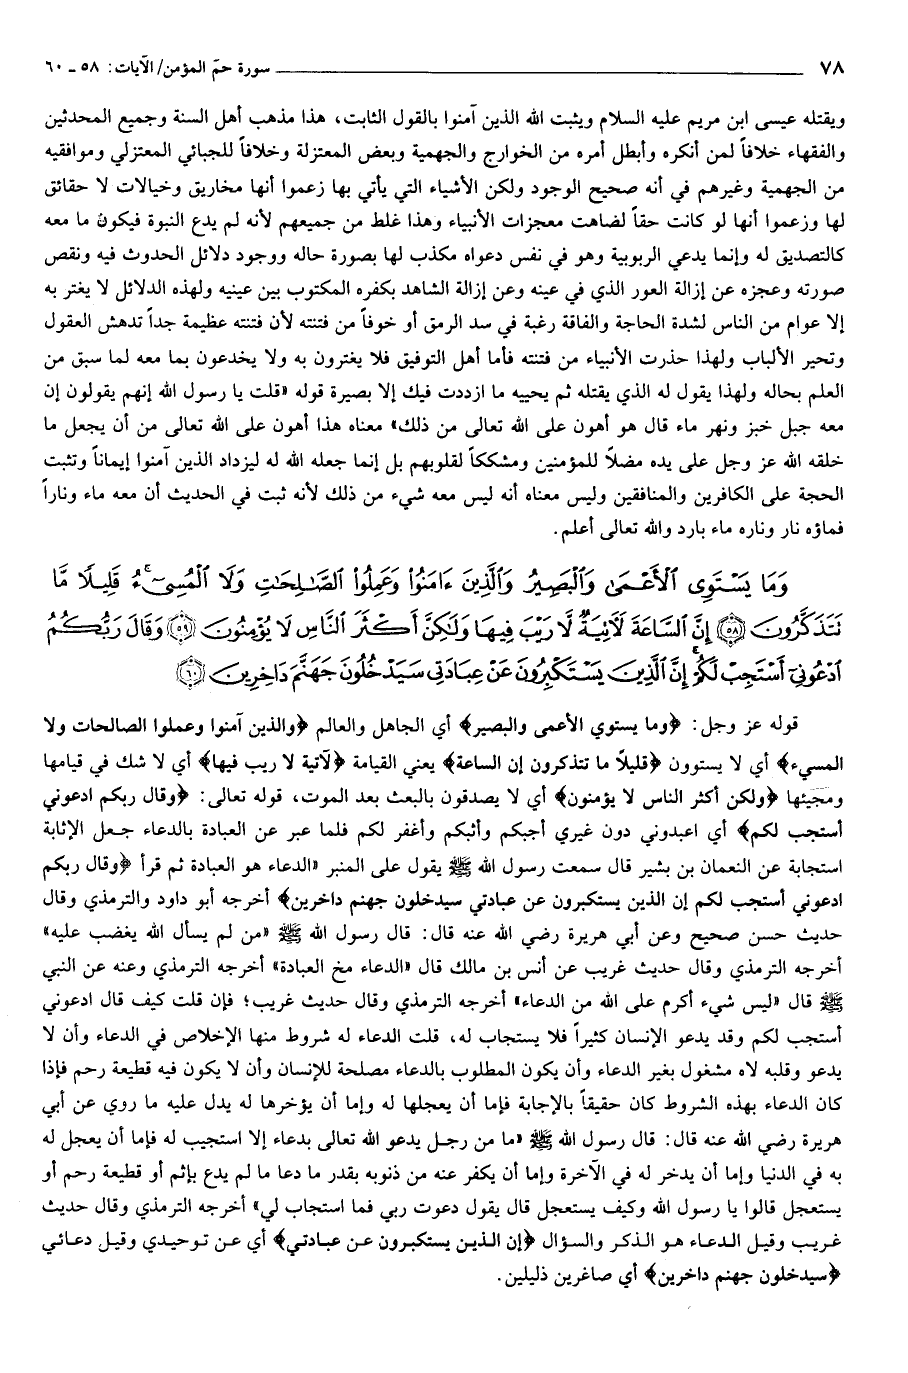 ٧٨ سورة حمّ المؤمن/ الآيات: ٥٨ ـ ٦٠
ويقتله عيسى ابن مريم عليه السلام ويثبت الله الذين آمنوا بالقول الثابت، هذا مذهب أهل السنة وجميع المحدثين
والفقهاء خلافاً لمن أنكره وأبطل أمره من الخوارج والجهمية وبعض المعتزلة وخلافاً للجبائي المعتزلي وموافقيه
من الجهمية وغيرهم في أنه صحيح الوجود ولكن الأشياء التي يأتي بها زعموا أنها مخاريق وخيالات لا حقائق
لها وزعموا أنها لو كانت حقاً لضاهت معجزات الأنبياء وهذا غلط من جميعهم لأنه لم يدع النبوة فيكون ما معه
كالتصديق له وإنما يدعي الربوبية وهو في نفس دعواه مكذب لها بصورة حاله ووجود دلائل الحدوث فيه ونقص
صورته وعجزه عن إزالة العور الذي في عينه وعن إزالة الشاهد بكفره المكتوب بين عينيه ولهذه الدلائل لا يغتر به
إلا عوام من الناس لشدة الحاجة والفاقة رغبة في سد الرمق أو خوفاً من فتنته لأن فتنته عظيمة جداً تدهش العقول
وتحير الألباب ولهذا حذرت الأنبياء من فتنته فأما أهل التوفيق فلا يغترون به ولا يخدعون بما معه لما سبق من
العلم بحاله ولهذا يقول له الذي يقتله ثم يحييه ما ازددت فيك إلا بصيرة قوله «قلت يا رسول الله إنهم يقولون إن
معه جبل خبز ونهر ماء قال هو أهون على الله تعالى من ذلك» معناه هذا أهون على الله تعالى من أن يجعل ما
خلقه الله عز وجل على يده مضلاً للمؤمنين ومشككاً لقلوبهم بل إنما جعله الله له ليزداد الذين آمنوا إيماناً وتثبت
الحجة على الكافرين والمنافقين وليس معناه أنه ليس معه شيء من ذلك لأنه ثبت في الحديث أن معه ماء وناراً
فماؤه نار وناره ماء بارد والله تعالى أعلم.
وَمَا يَسْتَوِى ٱلْأَعْمَىٰ وَٱلْبَصِيرُ وَٱلَّذِينَ ءَامَنُوا۟ وَعَمِلُوا۟ ٱلصَّٰلِحَٰتِ وَلَا ٱلْمُسِىٓءُ ۚ قَلِيلًا مَّا
نَتَذَكَّرُونَ ﴿٥٨﴾ إِنَّ ٱلسَّاعَةَ لَآتِيَةٌ لَّا رَيْبَ فِيهَا وَلَٰكِنَّ أَكْثَرَ ٱلنَّاسِ لَا يُؤْمِنُونَ ﴿٥٩﴾ وَقَالَ رَبُّكُمُ
ٱدْعُونِىٓ أَسْتَجِبْ لَكُمْ ۚ إِنَّ ٱلَّذِينَ يَسْتَكْبِرُونَ عَنْ عِبَادَتِى سَيَدْخُلُونَ جَهَنَّمَ دَاخِرِينَ ﴿٦٠﴾
قوله عز وجل: ﴿وما يستوي الأعمى والبصير﴾ أي الجاهل والعالم ﴿والذين آمنوا وعملوا الصالحات ولا
المسيء﴾ أي لا يستوون ﴿قليلاً ما تتذكرون إن الساعة﴾ يعني القيامة ﴿لآتية لا ريب فيها﴾ أي لا شك في قيامها
ومجيئها ﴿ولكن أكثر الناس لا يؤمنون﴾ أي لا يصدقون بالبعث بعد الموت، قوله تعالى: ﴿وقال ربكم ادعوني
أستجب لكم﴾ أي اعبدوني دون غيري أجبكم وأثبكم وأغفر لكم فلما عبر عن العبادة بالدعاء جعل الإثابة
استجابة عن النعمان بن بشير قال سمعت رسول الله ﷺ يقول على المنبر «الدعاء هو العبادة ثم قرأ ﴿وقال ربكم
ادعوني أستجب لكم إن الذين يستكبرون عن عبادتي سيدخلون جهنم داخرين﴾ أخرجه أبو داود والترمذي وقال
حديث حسن صحيح وعن أبي هريرة رضي الله عنه قال: قال رسول الله ﷺ «من لم يسأل الله يغضب عليه»
أخرجه الترمذي وقال حديث غريب عن أنس بن مالك قال «الدعاء مخ العبادة» أخرجه الترمذي وعنه عن النبي
ﷺ قال «ليس شيء أكرم على الله من الدعاء» أخرجه الترمذي وقال حديث غريب؛ فإن قلت كيف قال ادعوني
أستجب لكم وقد يدعو الإنسان كثيراً فلا يستجاب له، قلت الدعاء له شروط منها الإخلاص في الدعاء وأن لا
يدعو وقلبه لاه مشغول بغير الدعاء وأن يكون المطلوب بالدعاء مصلحة للإنسان وأن لا يكون فيه قطيعة رحم فإذا
كان الدعاء بهذه الشروط كان حقيقاً بالإجابة فإما أن يعجلها له وإما أن يؤخرها له يدل عليه ما روي عن أبي
هريرة رضي الله عنه قال: قال رسول الله ﷺ «ما من رجل يدعو الله تعالى بدعاء إلا استجيب له فإما أن يعجل له
به في الدنيا وإما أن يدخر له في الآخرة وإما أن يكفر عنه من ذنوبه بقدر ما دعا ما لم يدع بإثم أو قطيعة رحم أو
يستعجل قالوا يا رسول الله وكيف يستعجل قال يقول دعوت ربي فما استجاب لي» أخرجه الترمذي وقال حديث
غريب وقيل الدعاء هو الذكر والسؤال ﴿إن الذين يستكبرون عن عبادتي﴾ أي عن توحيدي وقيل دعائي
﴿سيدخلون جهنم داخرين﴾ أي صاغرين ذليلين.